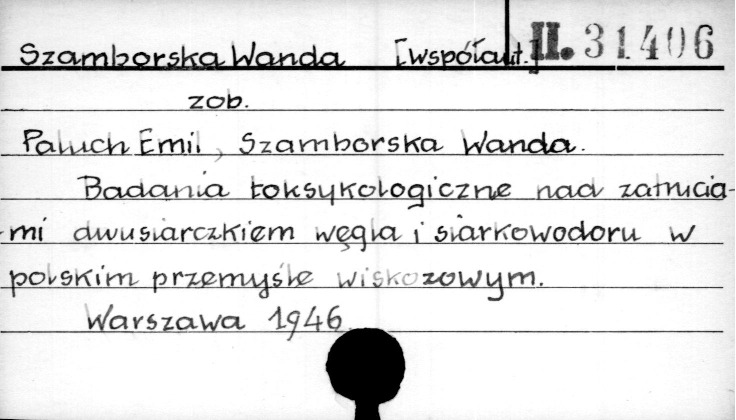 Szamborska Wanda [współaut.] II. 31406
zob.
Paluch Emil, Szamborska Wanda.
Badania toksykologiczne nad zatrucia-
-mi dwusiarczkiem węgla i siarkowodoru w
polskim przemyśle wiskozowym.
Warszawa 1946.